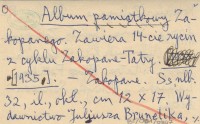 Album pamiątkowy Za-
kopanego. Zawiera 14-cie rycin
z cyklu Zakopane-Tatry.
[1935.] — Zakopane. Ss nlb.
32, il., okł., cm 12 × 17. Wy-
dawnictwo Juliusza Brunelika,